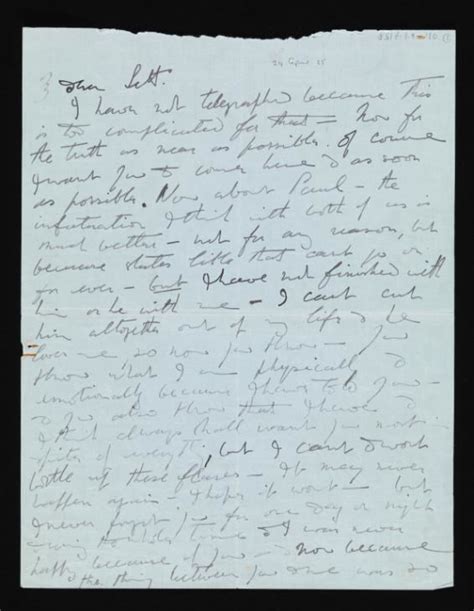 24 April 25
Dear Sett.
I have not telegraphed because This
is too complicated for that – Now for
the truth as near as possible. Of course
I want you to come here & as soon
as possible. Now about Paul – the
infatuation I think with both of us is
much better – not for any reason, but
because states like that can't go on
for ever – but I have not finished with
him or he with me – I can't cut
him altogether out of my life & he
me so now you know – you
know what I am physically &
emotionally because I have told you –
& you also know that I have &
I think always shall want you most in
spite of everything, but I can't
bottle up these – It may never
happen again – I hope it won't – but
I never forgot you for one day or night
during times & I was never
happy because of you – now because
the thing between you & me was so